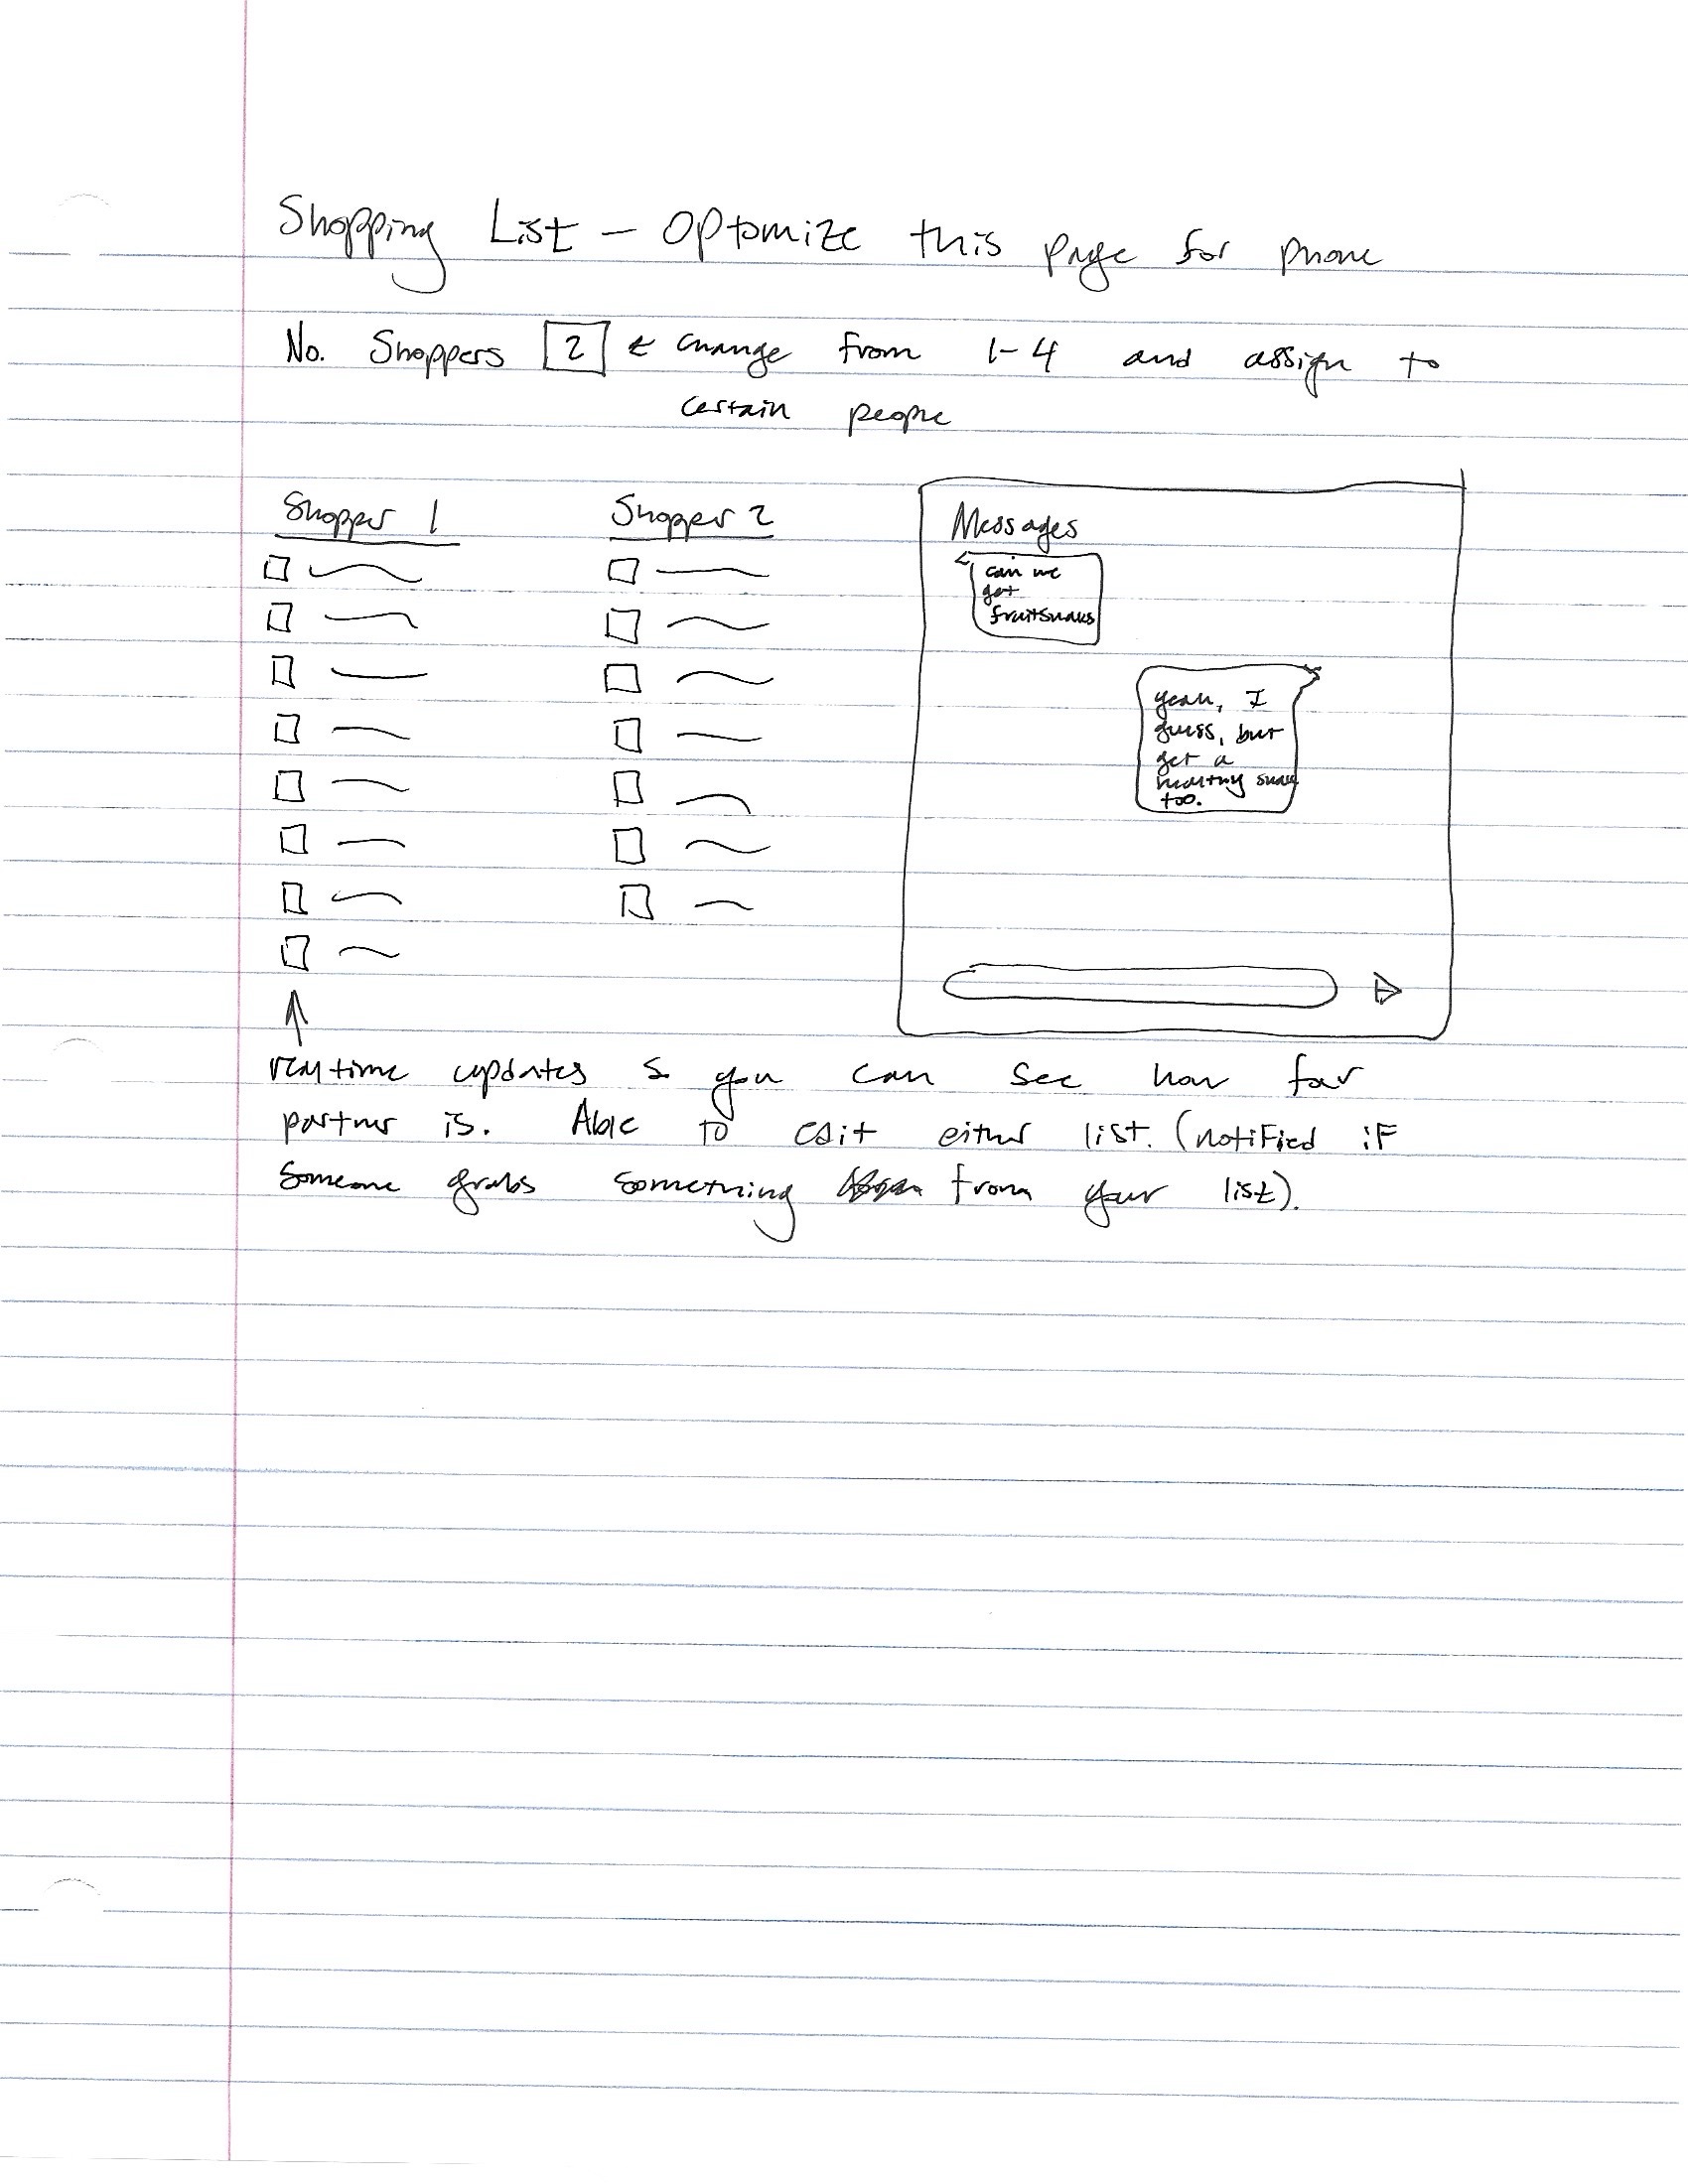 Shopping List - Optomize this page for phone
No. Shoppers 2 ← change from 1-4 and assign to
certain people
Shopper 1
Shopper 2
Messages
can we
get
fruitsnacks
yeah, I
guess, but
get a
healthy snack
too.
realtime updates so you can see how far
partner is. Able to edit either list. (notified if
someone grabs something from your list).